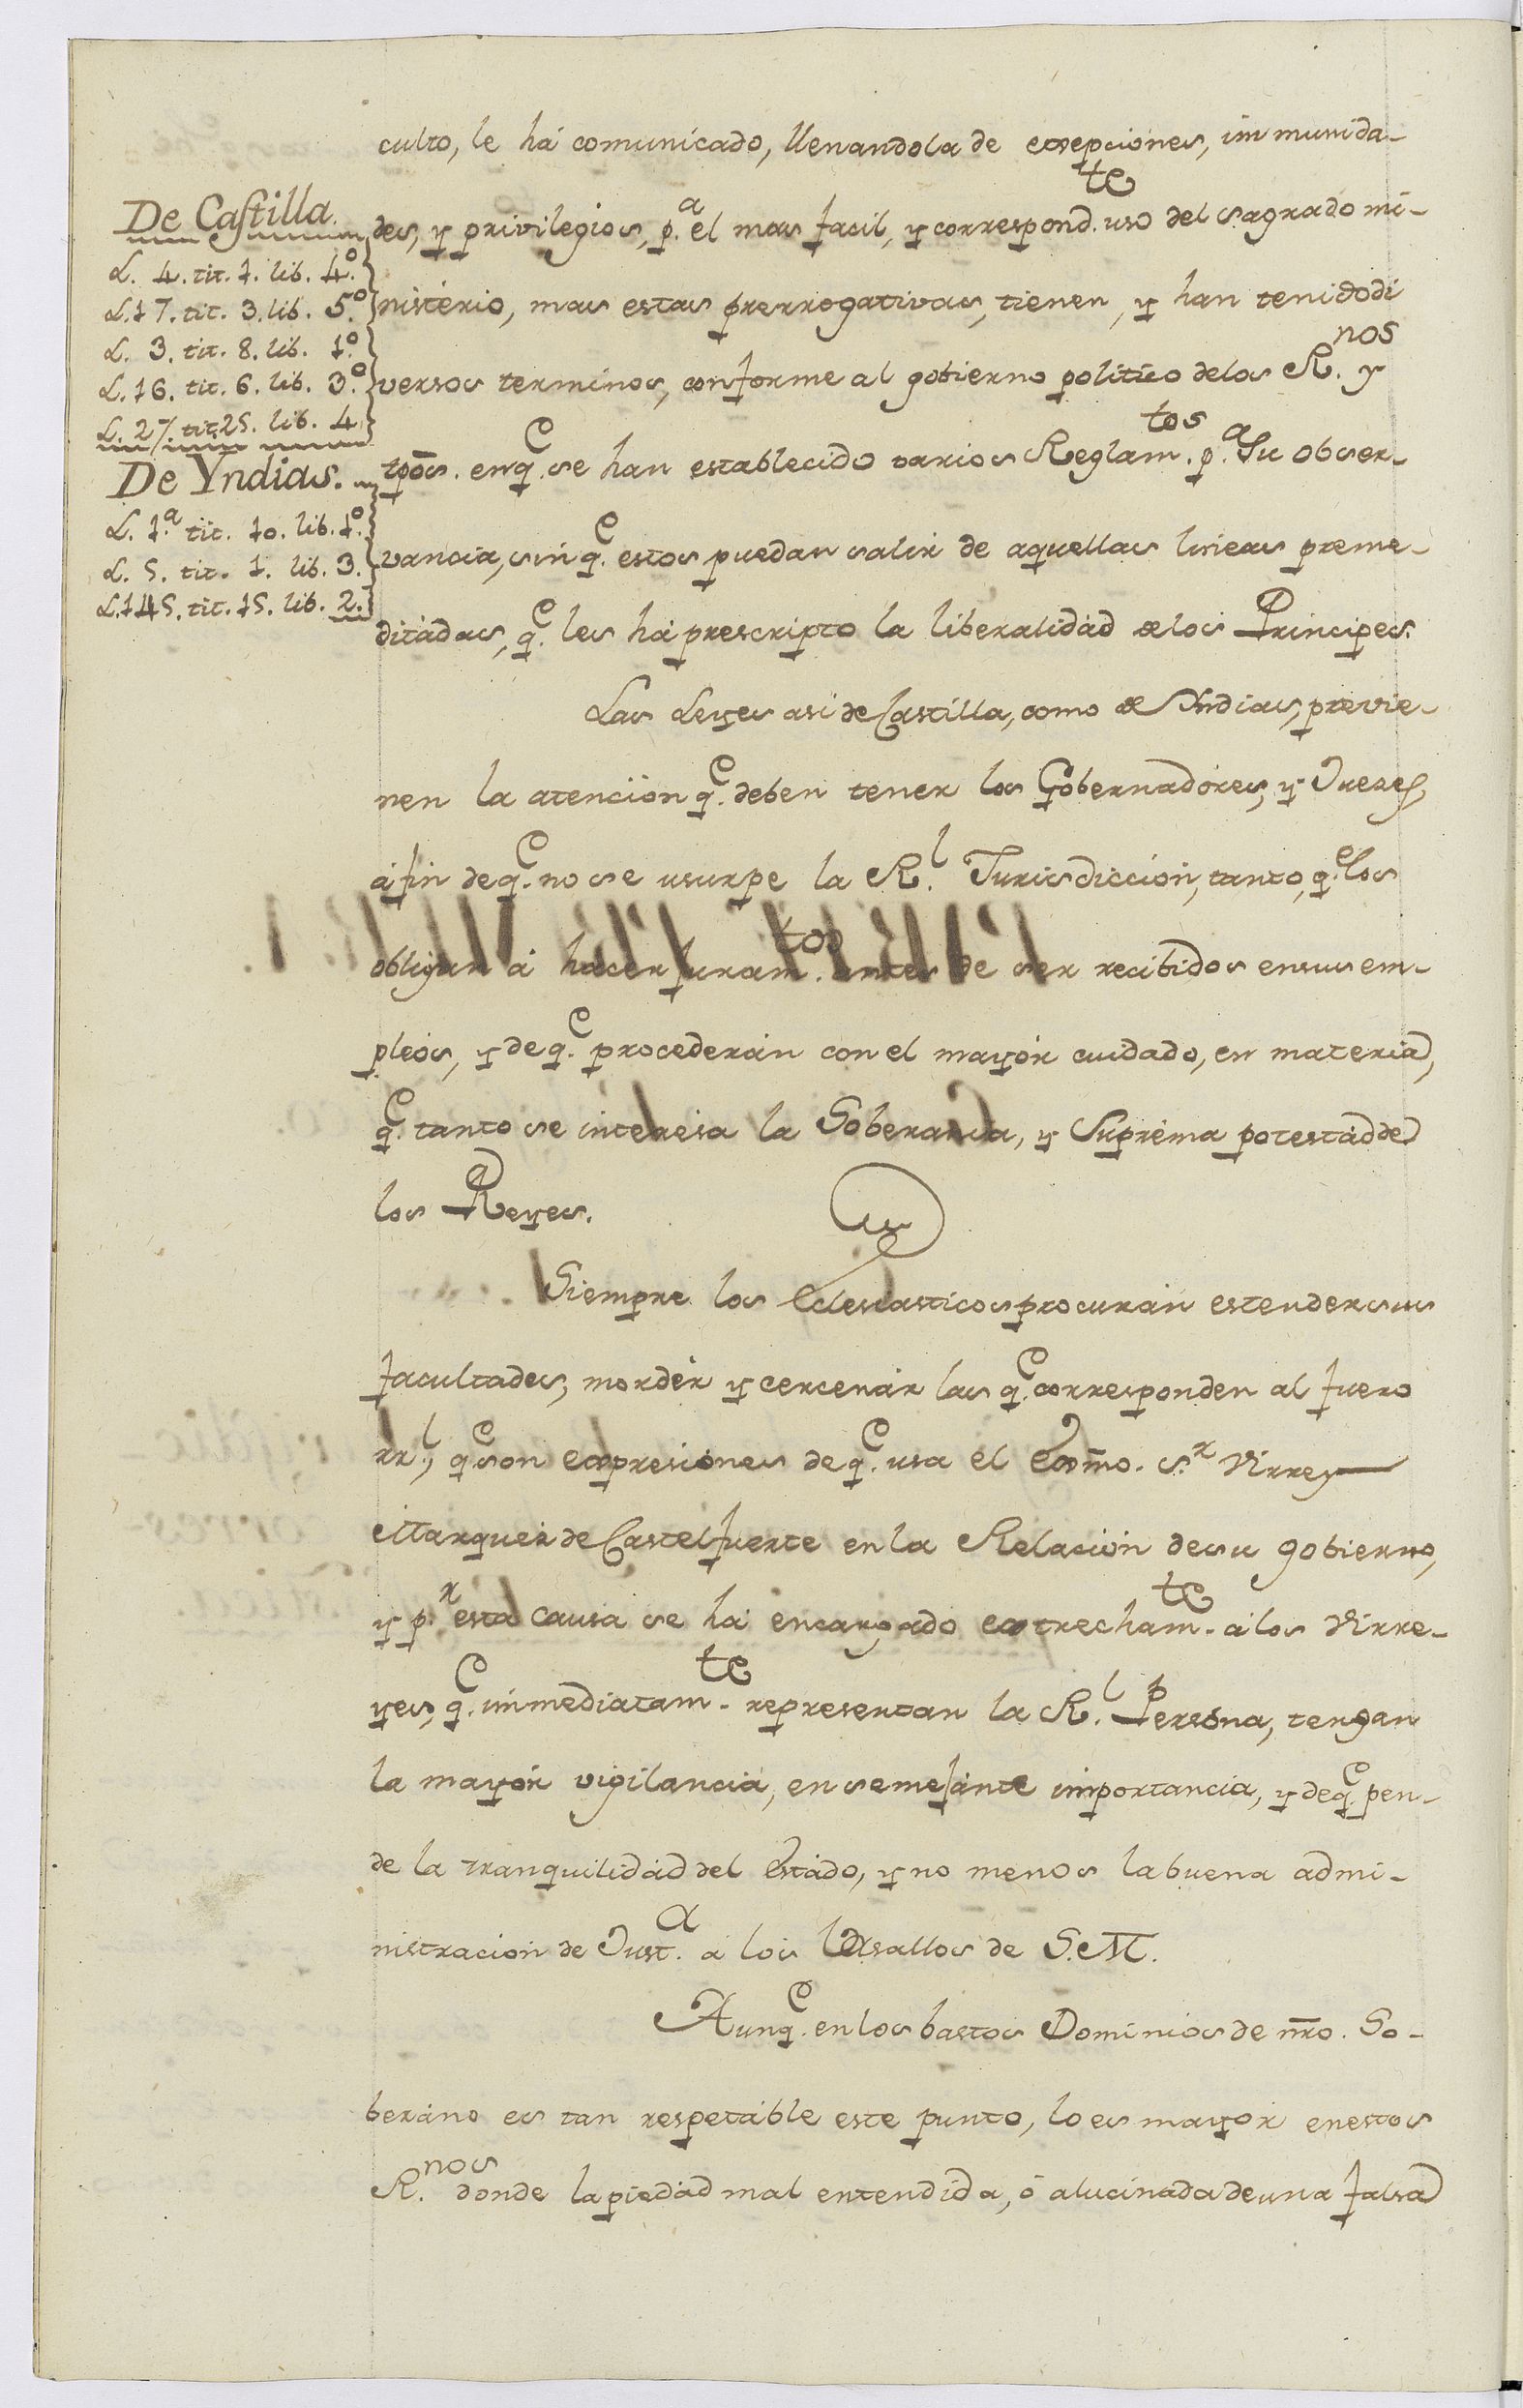 culto, le há comunicado, llenandola de exsepciones, inmunida-
des, y privilegios, p.ª el mas facil, y correspond.te uso del sagrado mi-
nistério, mas estas prerrogativas, tienen, y han tenido di
versos terminos, conforme al gobierno politico de los R.nos y
tpōs. en q.e se han establecido varios Reglam.tos p.ª Su obser-
vancia, sin q.e estos puedan salir de aquellas lineas preme-
ditadas, q.e les há prescripto la liberalidad de los Principes.
De Castilla.
L. 4. tit. 1. lib. 4.º
L. 17. tit. 3. lib. 5.º
L. 3. tit. 8. lib. 1.º
L. 16. tit. 6. lib. 3.º
L. 27. tit. 25. lib. 4
De Yndias.
L. 1.ª tit. 10. lib. 1.º
L. 5. tit. 1. lib. 3.
L. 145. tit. 15. lib. 2.
Las Leyes asi de Castilla, como de Yndias, previe-
nen la atencion q.e deben tener los Gobernadores, y Juezes,
á fin de q.e no se usurpe la R.l Jurisdiccion, tanto, q.e los
obligan á hacer juram.tos antes de ser recibidos en sus em-
pleos, y de q.e procederán con el mayór cuidado, en materia,
q.e tanto se interesa la Soberania, y Suprema potestád de
los Reyes.
Siempre los Eclesiasticos procurán estender sus
facultades, mordér y cercenár las q.e corresponden al fuero
rr.l, q.e son expresiones de q.e usa el Exm̄o. S.r Virrey
Marquez de Castelfuerte en la Relacion de su gobierno,
y p.r esta causa se há encargado extrecham.te á los Virre-
yes, q.e inmediatam.te representan la R.l Persona, tengan
la mayór vigilancia, en semejante importancia, y de q.e pen-
de la tranquilidad del Estádo, y no menos la buena admi-
nistracion de Just.ª á los Vasallos de S. M.
Aunq.e en los bastos Dominios de nr̄o. So-
beráno es tan respetáble este punto, lo es mayor en estos
R.nos donde la piedád mal entendida, ó alucinada de una falsa